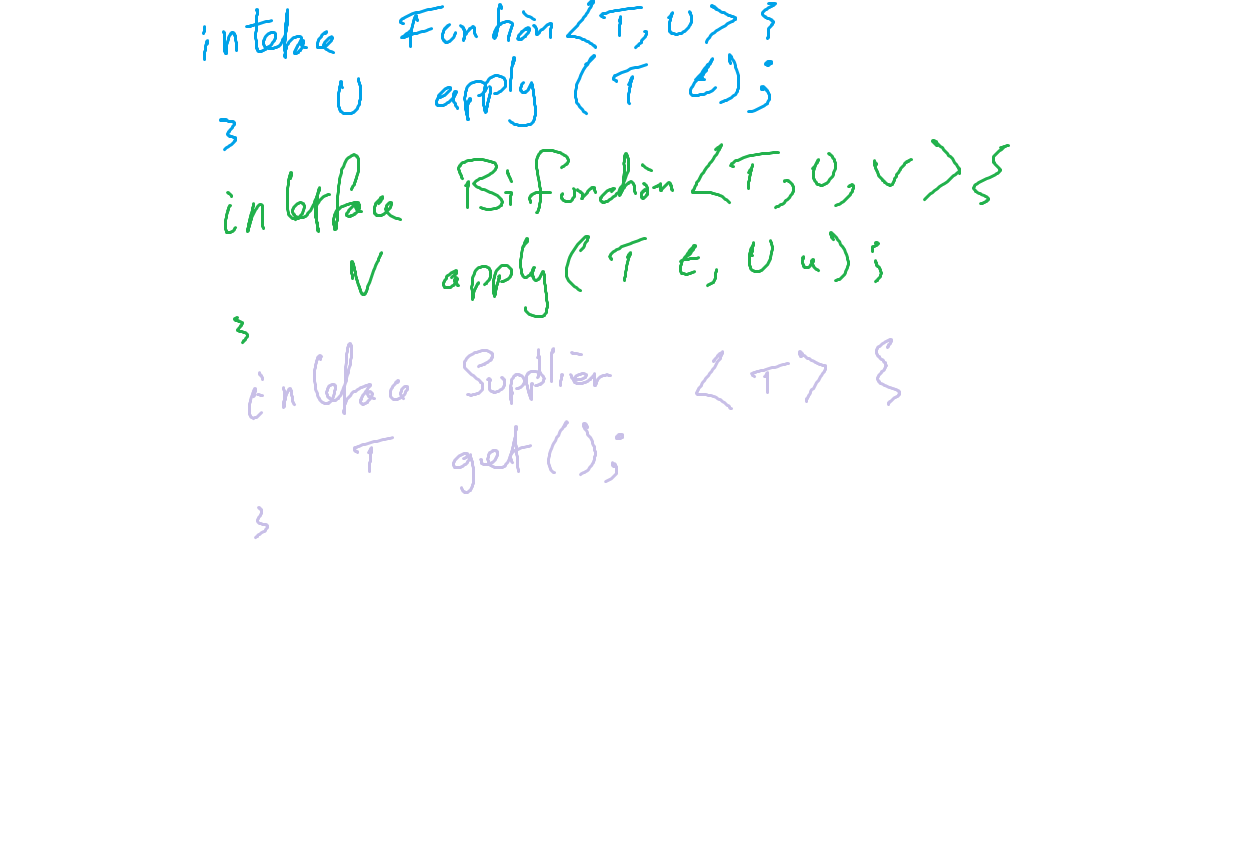 interface Function<T, U> {
U apply (T t);
}
interface Bifunction<T, U, V> {
V apply(T t, U u);
}
interface Supplier <T> {
T get();
}